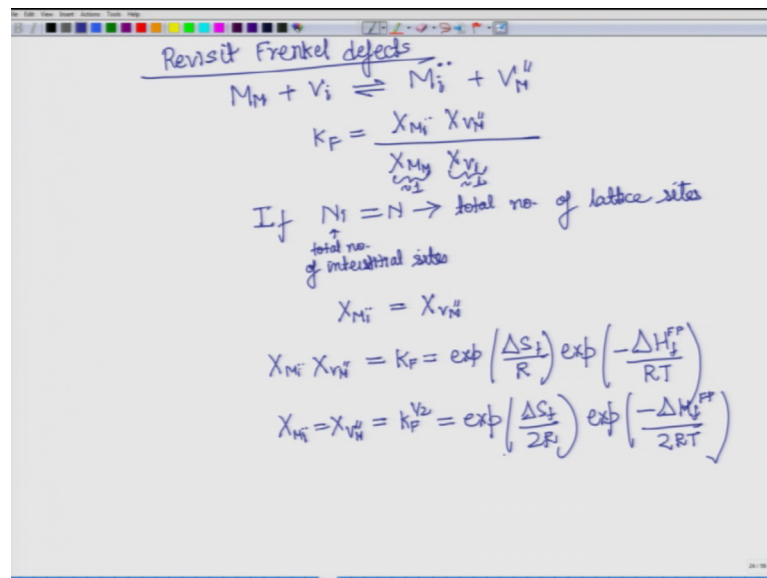 File Edit View Insert Actions Tools Help
Revisit Frenkel defects
M_M + V_i ⇌ M_i^{••} + V_M^{''}
K_F = X_{M_i^{••}} X_{V_M^{''}} / X_{M_M} X_{V_i}
≈1 ≈1
If N_i = N → total no. of lattice sites
↑
total no.
of interstitial sites
X_{M_i^{••}} = X_{V_M^{''}}
X_{M_i^{••}} X_{V_M^{''}} = K_F = exp(ΔS_f / R) exp(-ΔH_f^{FP} / RT)
X_{M_i^{••}} = X_{V_M^{''}} = K_F^{1/2} = exp(ΔS_f / 2R) exp(-ΔH_f^{FP} / 2RT)